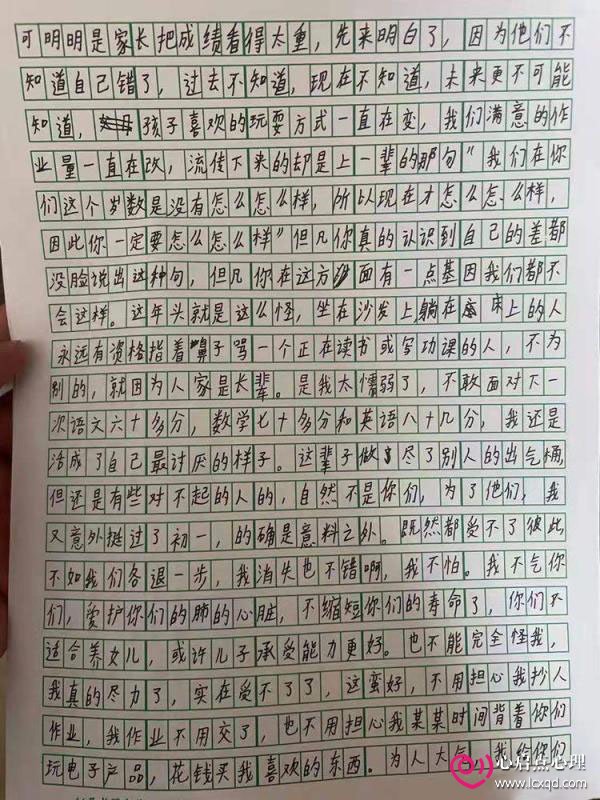 可明明是家长把成绩看得太重，先来明白了，因为他们不
知道自己错了，过去不知道，现在不知道，未来更不可能
知道，孩子喜欢的玩耍方式一直在变，我们满意的作
业量一直在改，流传下来的却是上一辈的那句"我们在你
们这个岁数是没有怎么怎么样，所以现在才怎么怎么样，
因此你一定要怎么怎么样"但凡你真的认识到自己的差都
没脸说出这种句，但凡你在这方面有一点基因我们都不
会这样。这年头就是这么怪，坐在沙发上躺在床上的人
永远有资格指着鼻子骂一个正在读书或写功课的人，不为
别的，就因为人家是长辈。是我太懦弱了，不敢面对下一
次语文六十多分，数学七十多分和英语八十几分，我还是
活成了自己最讨厌的样子。这辈子做尽了别人的出气桶，
但还是有些对不起的人的，自然不是你们，为了他们，我
又意外挺过了初一，的确是意料之外。既然都受不了彼此，
不如我们各退一步，我消失也不错啊，我不怕。我不气你
们，爱护你们的肺的心脏，不缩短你们的寿命了，你们不
适合养女儿，或许儿子承受能力更好。也不能完全怪我，
我真的尽力了，实在受不了了，这蛮好，不用担心我抄人
作业，我作业不用交了，也不用担心我某某时间背着你们
玩电子产品，花钱买我喜欢的东西。为人大气，我给你们
心启点心理
www.lcxqd.com